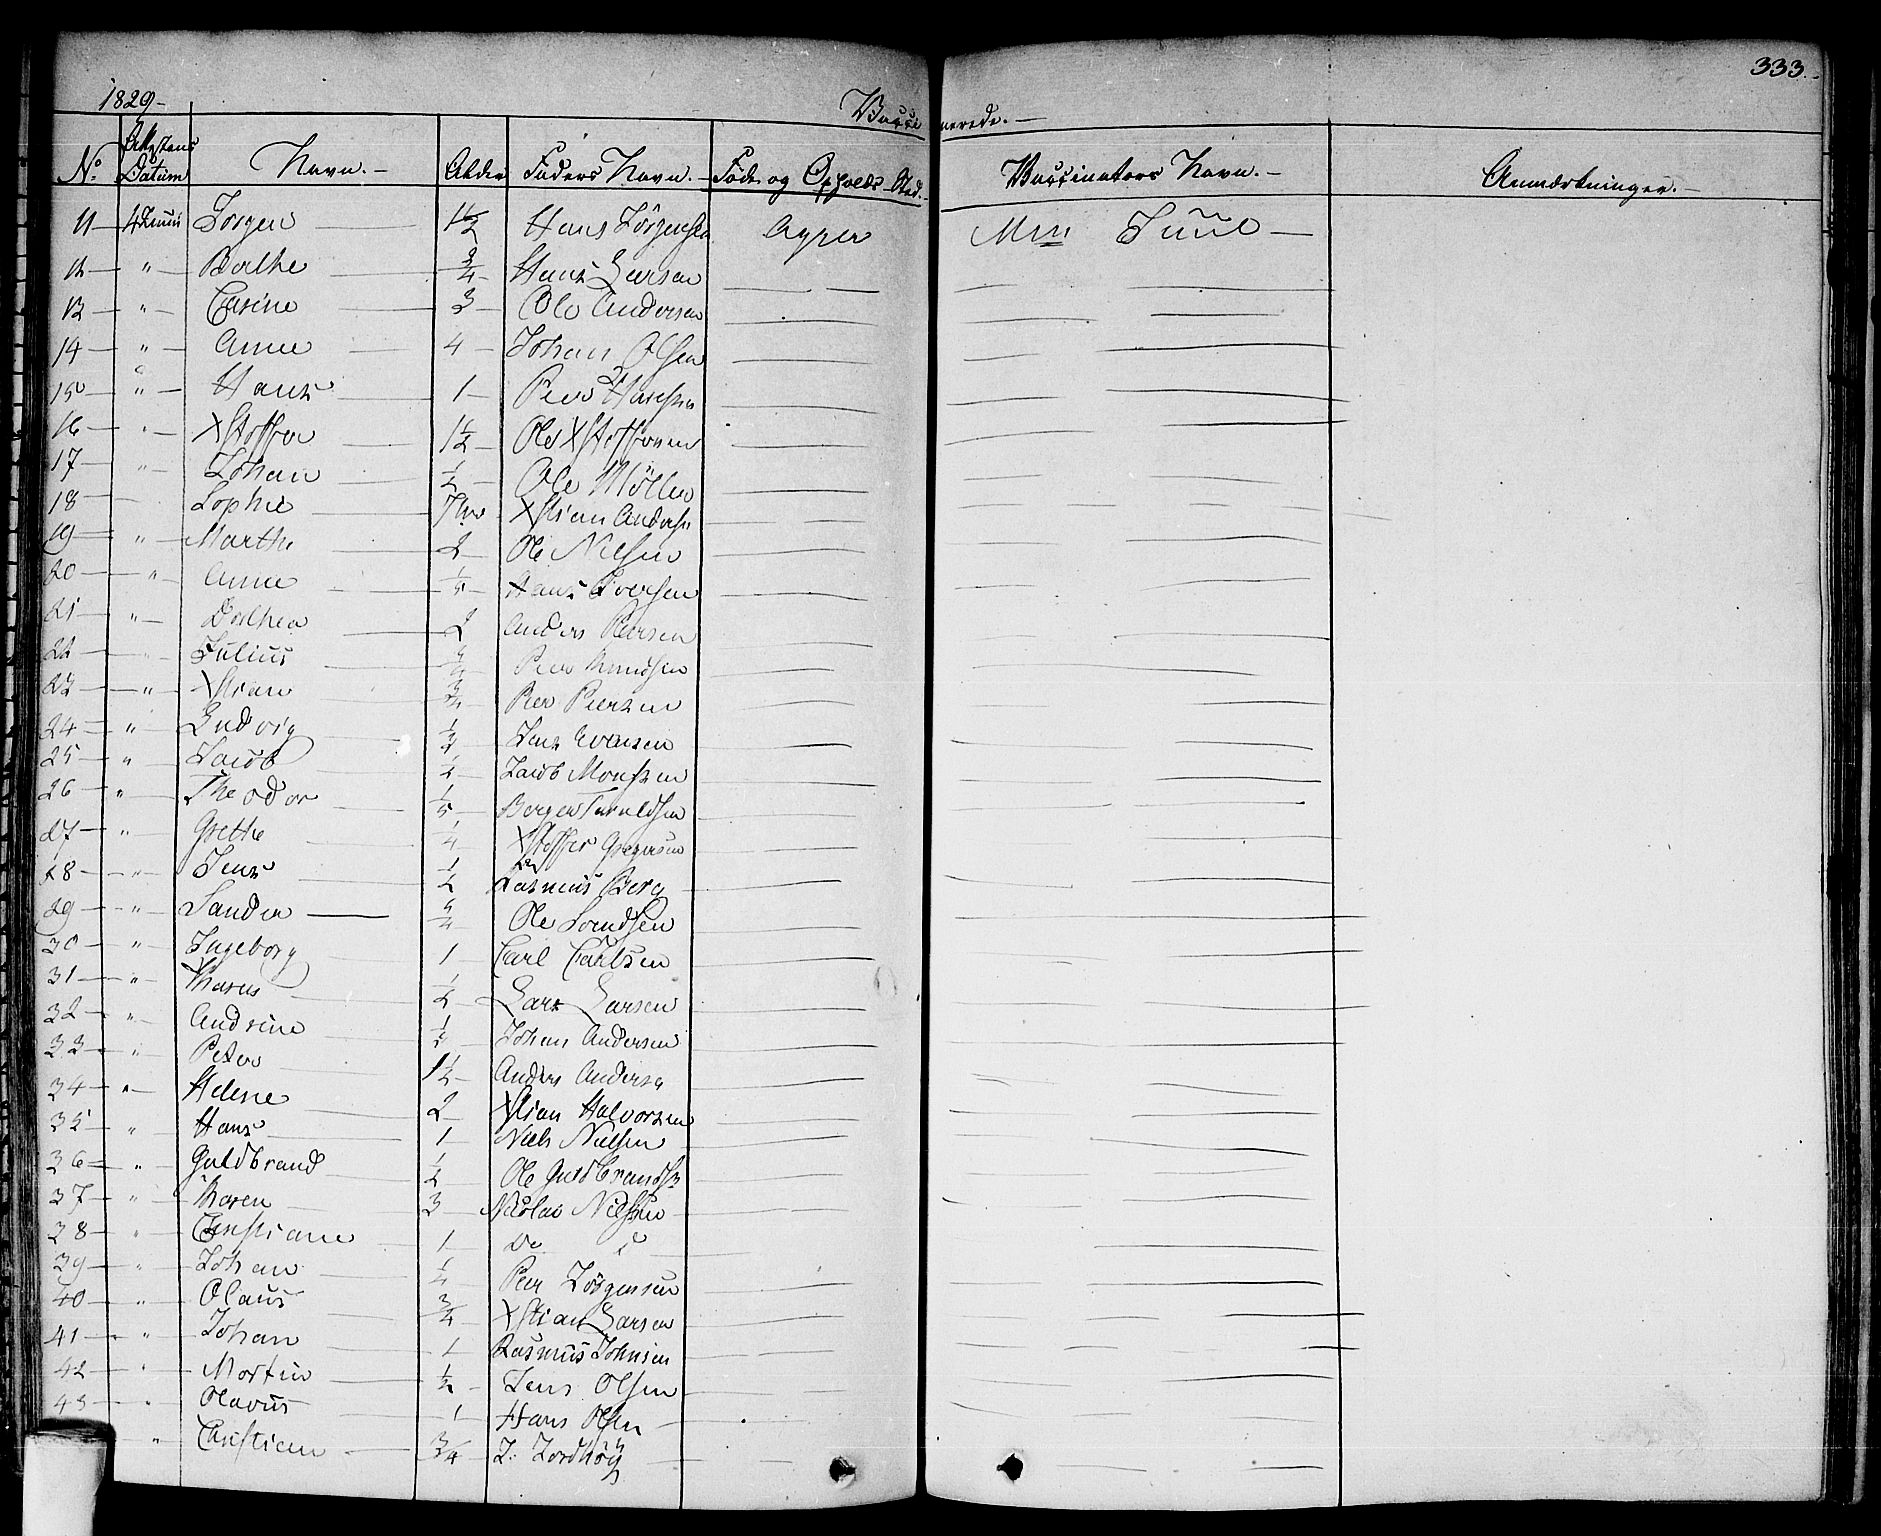 333.
1829-
Vacci nerede. -
No Attestens Datum Navn. - Alder Faders Navn. - Føde og Opholds Sted. - Vaccinateurs Navn. - Anmærkninger. -
11 4 Juni Jörgen 1 1/2 Hans Jörgensen Agger Mm Juul -
12 " Berthe 3/4 Hans Larsen
13 " Carine 3 Ole Andersen
14 " Anne 4 Johan Olsen
15 " Hans 1 Peer Hansen
16 " Xstoffer 1 1/2 Ole Xstoffersen
17 " Johan 1/2 Ole Möller
18 Sophie Xstian Anders
19 " Marthe 2 Ole Nilsen
20 " Anne 1/5 Hans Iversen
21 " Dorthea 2 Anders Peersen
22 " Julius Peer Knudsen
23 " Xstian 3/4 Peer Peersen
24 " Ludvig 1/2 Jens Evensen
25 " Jacob 1/2 Jacob Monsen
26 " Theodor 1/5 Berger Taraldsen
27 " Grethe 1/4 Xstoffer Gregersen
28 " Jens 1/2 Rasmus Berg
29 " Sander Ole Svendsen
30 " Ingeborg 1 Carl Carlsen
31 " Maren 1/2 Lars Larsen
32 " Andrine 1/2 Johan Andersen
33 " Peter 1 1/2 Anders Anders
34 " Helene 2 Xstian Halvorsen
35 " Hans 1 Niels Nielsen
36 " Guldbrand 1/2 Ole Guldbrands
37 " Karen 3 Nicolai Nilsen
38 " Christiane 1 Do
39 " Johan 1/2 Peer Jörgensen
40 " Olaus 3/4 Xstian Larsen
41 " Johan 1 Rasmus Johnsen
42 " Martin 1/2 Jens Olsen
43 " Olavus 1 Hans Olsen
" Christian 3/4 J: Jordhöy